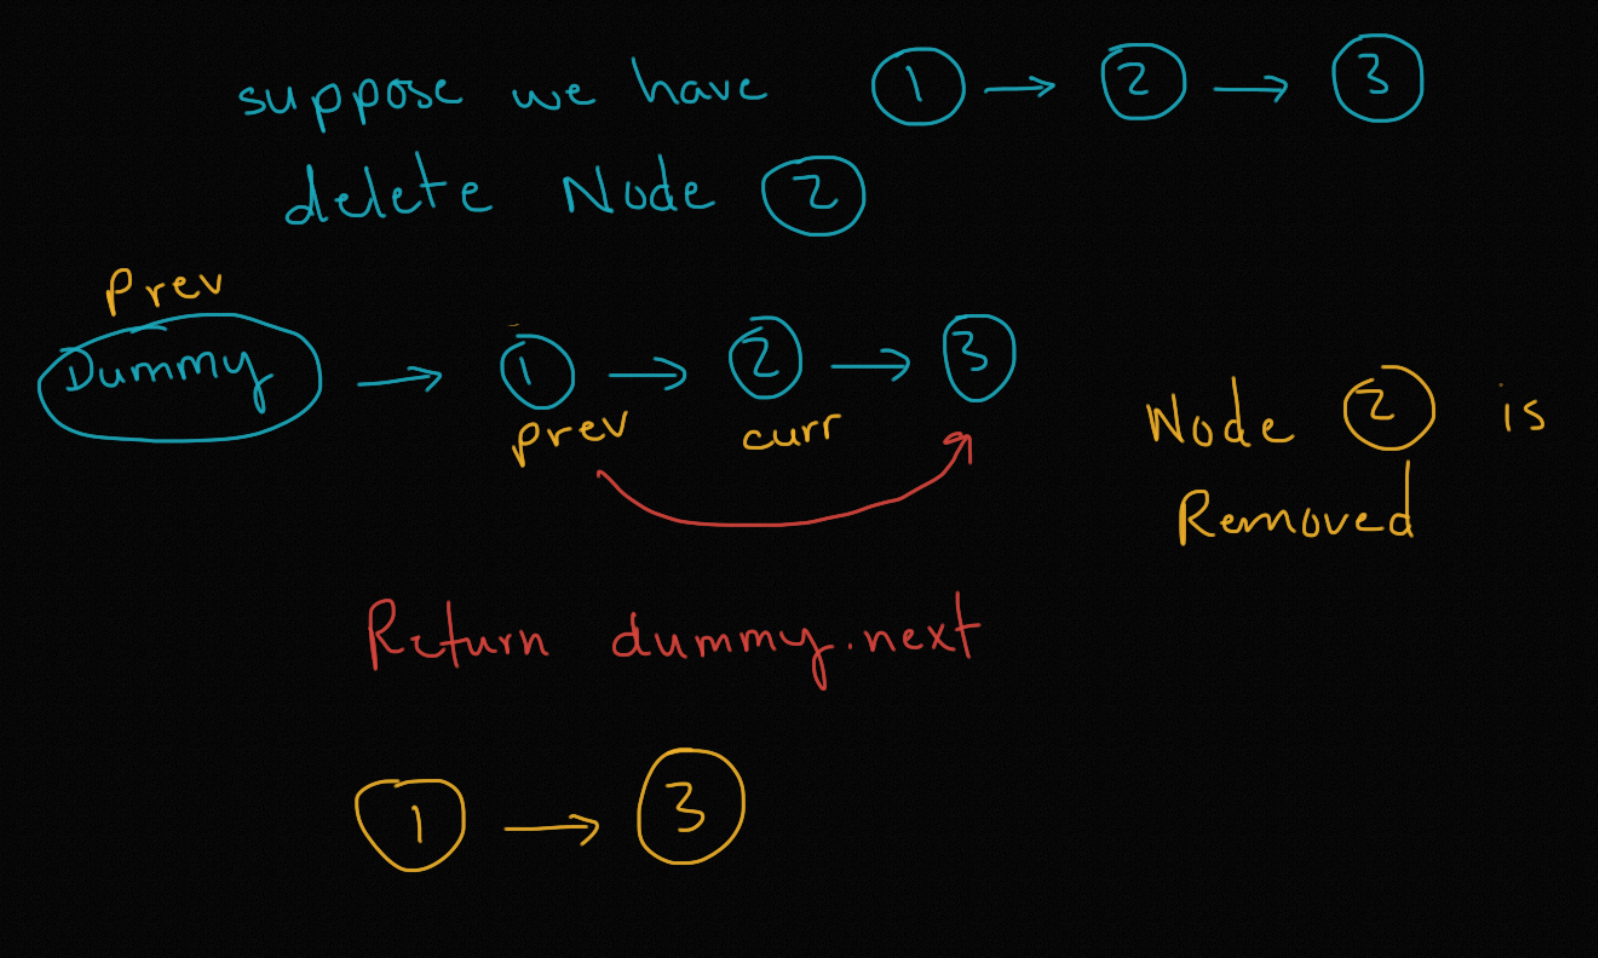 suppose we have 1 → 2 → 3
delete Node 2
Prev
Dummy → 1 → 2 → 3
prev curr
Node 2 is
Removed
Return dummy.next
1 → 3